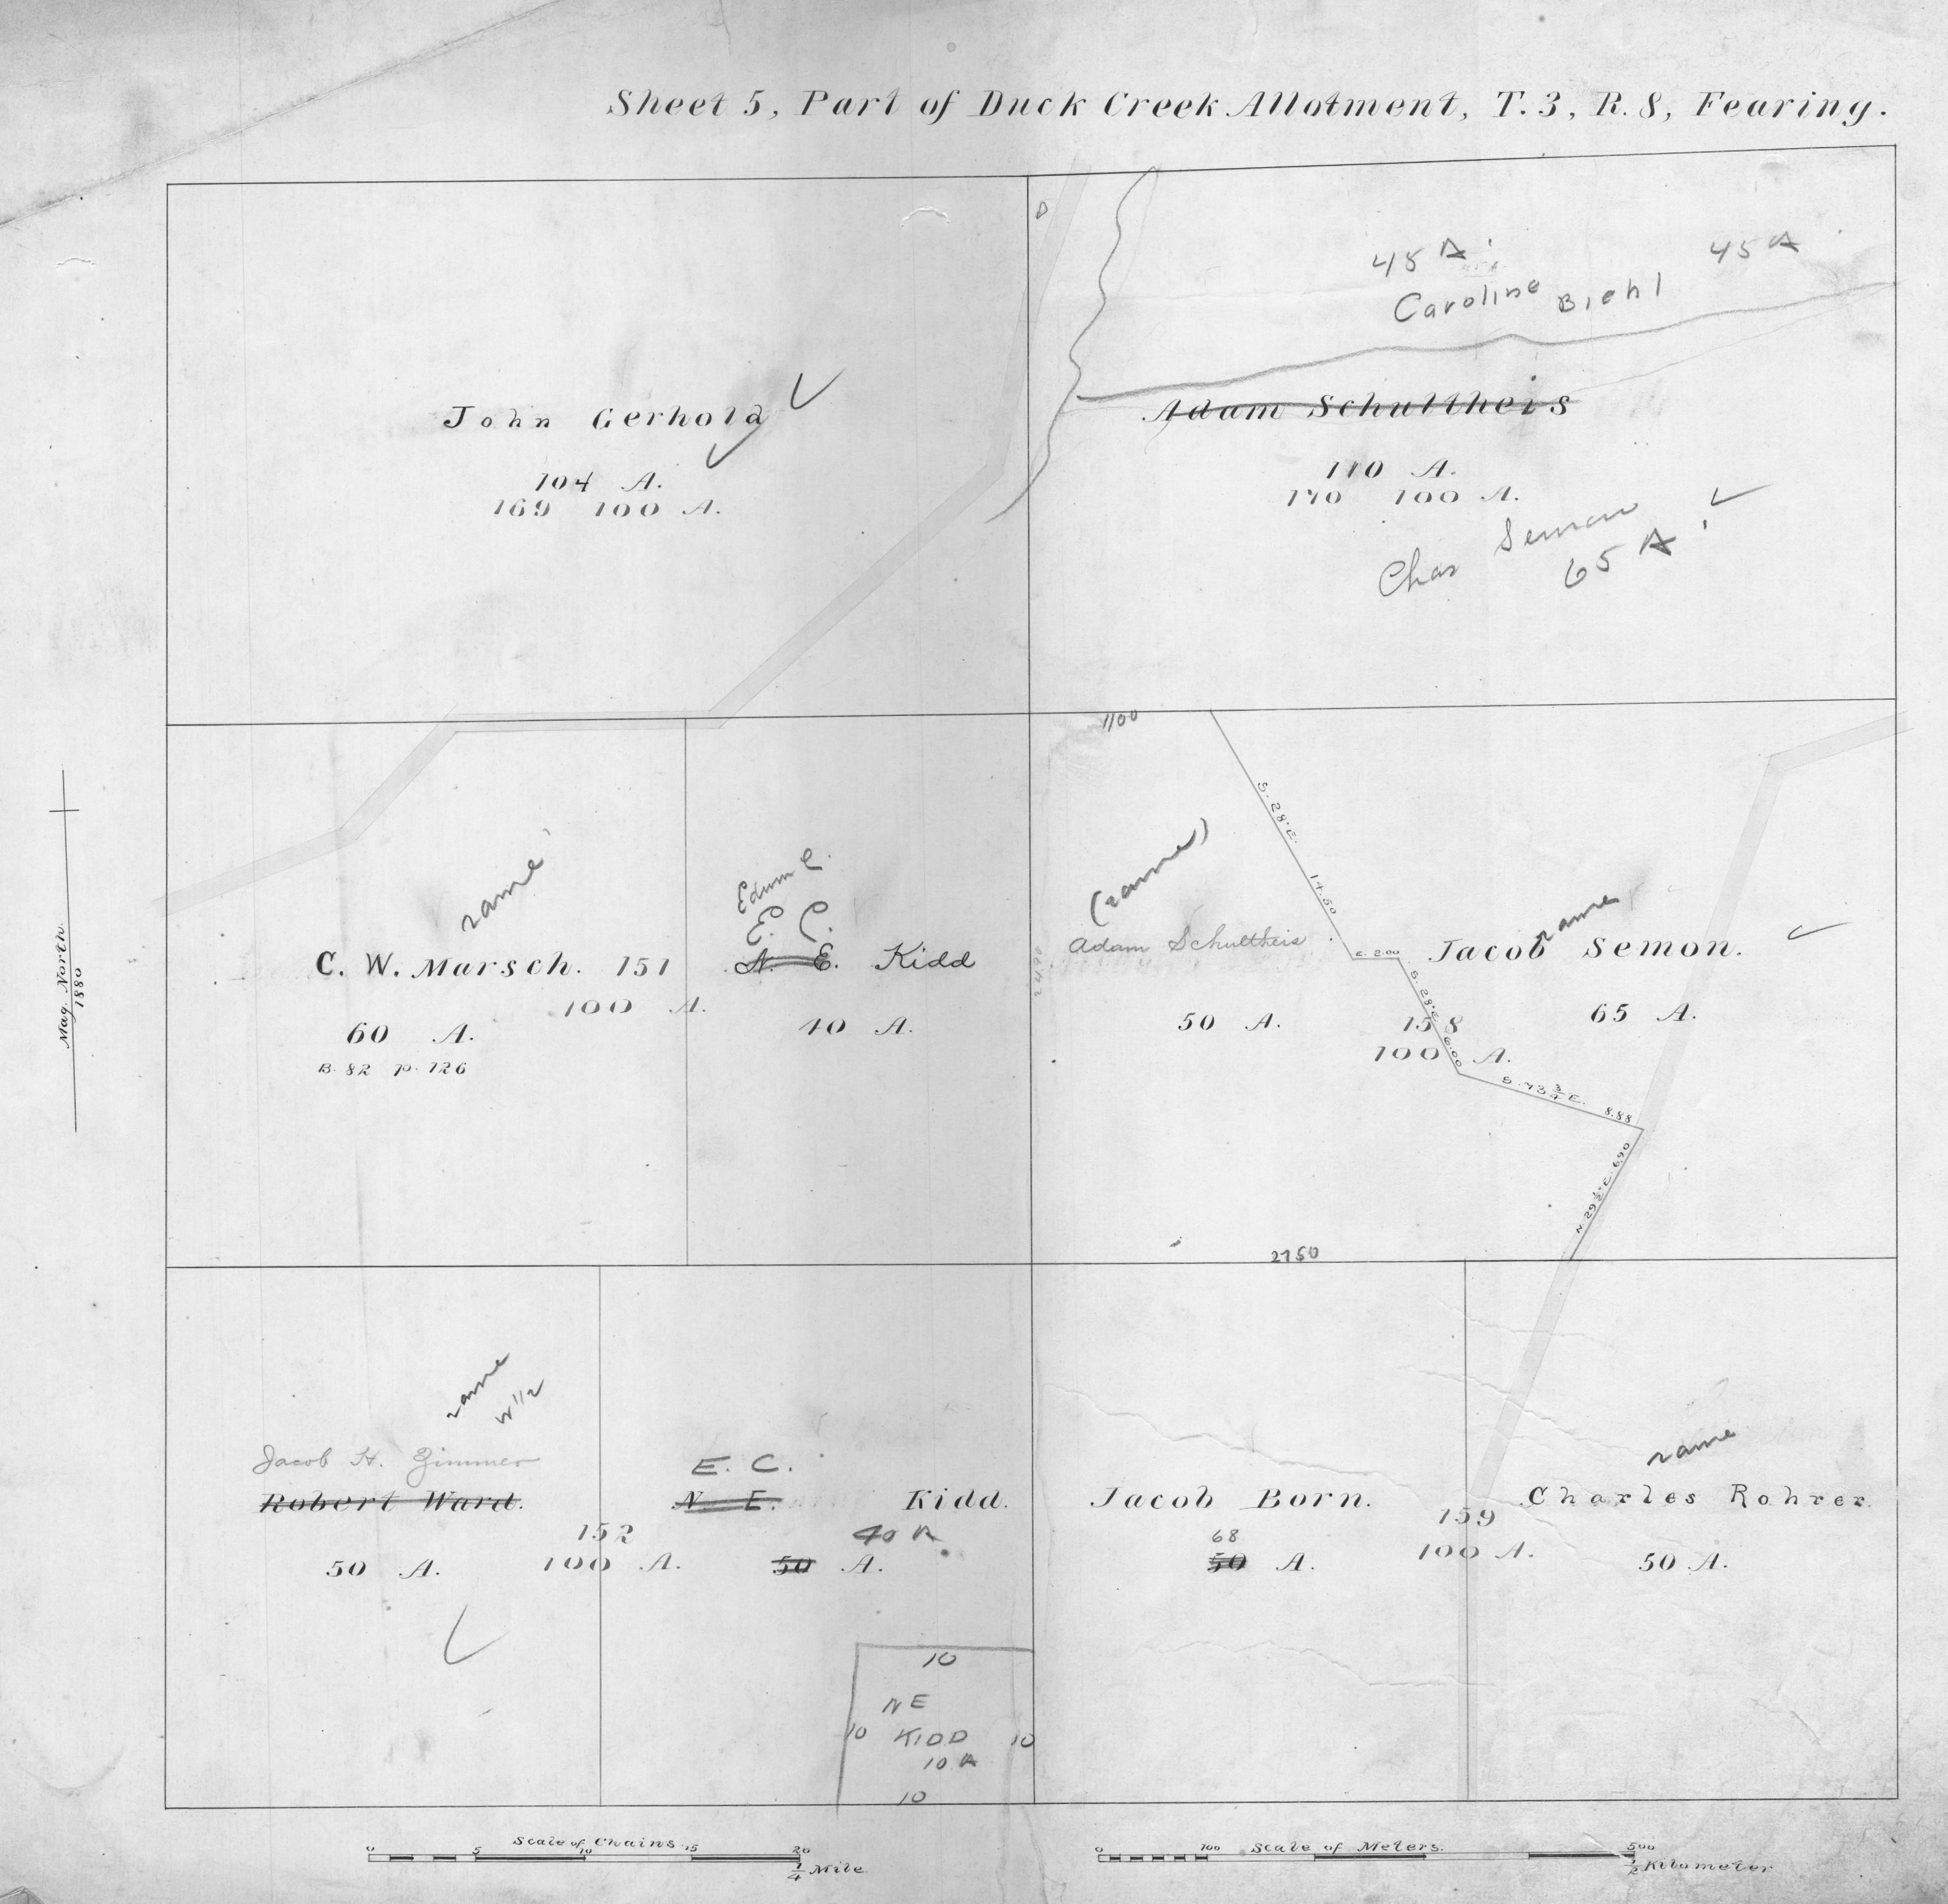 Sheet 5, Part of Duck Creek Allotment, T. 3, R. 8, Fearing.
D
45 A
45 A
Caroline Biehl
John Gerhold
104 A.
169 100 A.
Adam Schultheis
110 A.
170 100 A.
Chas Semon
65 A
Mag. North
1880
same
C. W. Marsch. 151
100 A.
60 A.
B. 82 p. 126
Edwin C.
E. C.
N. E. Kidd
40 A.
1100
(same)
Adam Schultheis
50 A.
S. 28° E. 14.50
E. 2.00
S. 28° E. 6.00
S. 73 3/4 E. 8.88
N. 29 1/2° E. 6.90
same
Jacob Semon.
65 A.
158
100 A.
2750
same
W 1/2
Jacob H. Zimmer
Robert Ward.
50 A.
152
100 A.
E. C.
N. E. Kidd.
40 A
50 A.
10
NE
10 KIDD 10
10 A
10
Jacob Born.
68
50 A.
159
100 A.
same
Charles Rohrer.
50 A.
Scale of Chains
0 5 10 15 20
1/4 Mile
Scale of Meters.
0 100 500
1/2 Kilometer